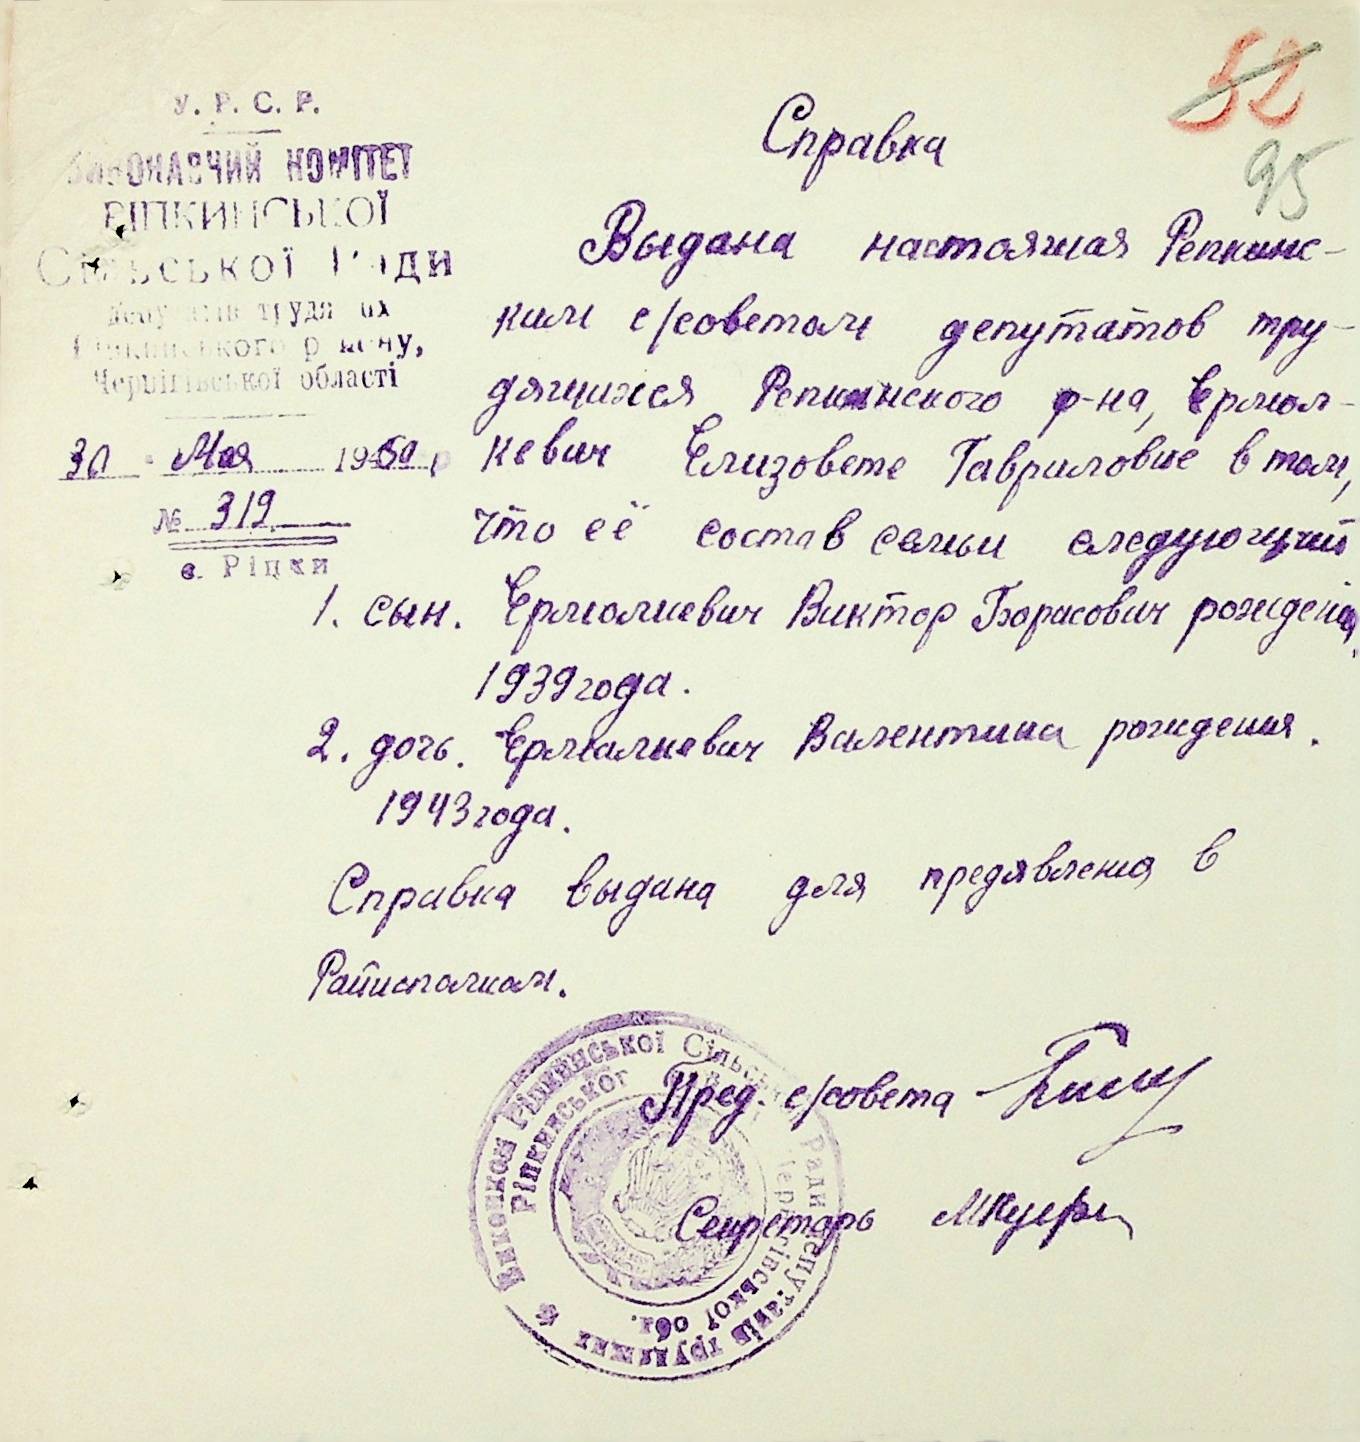 52
95
У. Р. С. Р.
ВИКОНАВЧИЙ КОМІТЕТ
РІПКИНСЬКОЇ
Сільської Ради
депутатів трудящих
Ріпкинського району,
Чернігівської області
30 Мая 1950 р
№ 319
с. Ріпки
Справка
Выдана настоящая Репкинс-
ким с/советом депутатов тру-
дящихся Репкинского р-на, Ермол-
кевич Елизовете Гавриловне в том,
что её состав семьи следующий
1. сын. Ермолкевич Виктор Борисович рождения
1939 года.
2. дочь. Ермолкевич Валентина рождения.
1943 года.
Справка выдана для предявления в
Райисполком.
Пред. с/совета
Секретарь
Виконком Ріпкинської Сільської Ради депутатів трудящих
Ріпкинського Чернігівської обл.